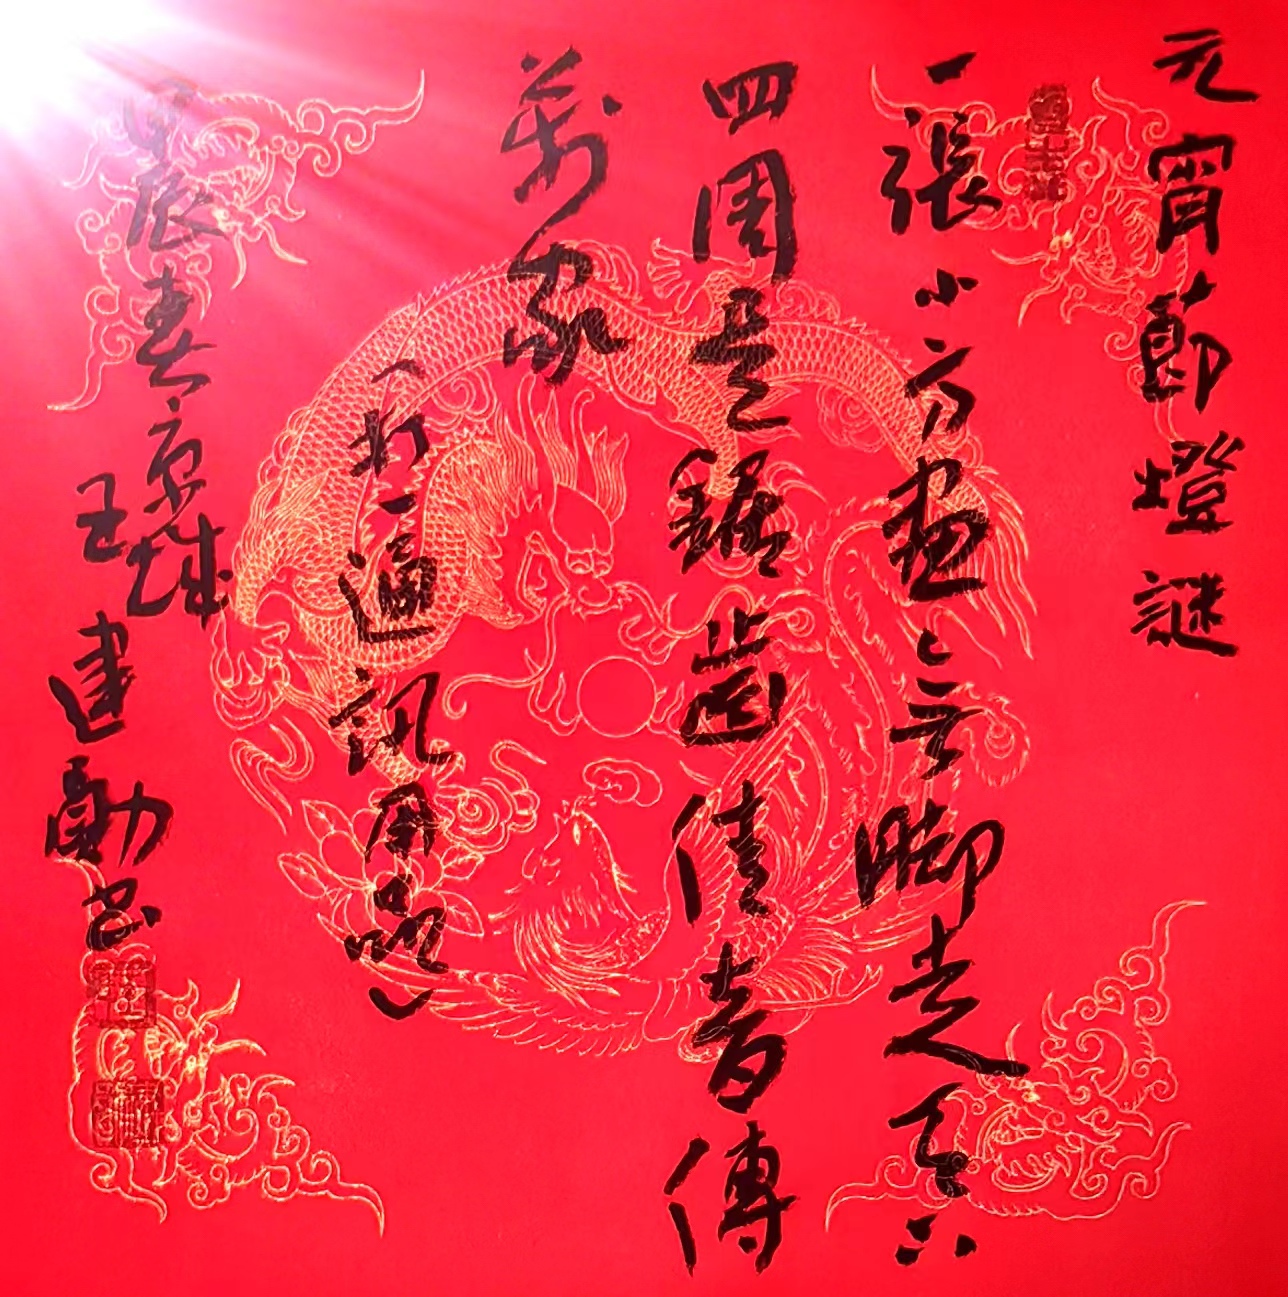 元宵節燈謎
一張小方畫無脚走天下
四周是鋸齒佳音傳
萬家
（打一通訊用品）
甲辰春京城
王建勳書